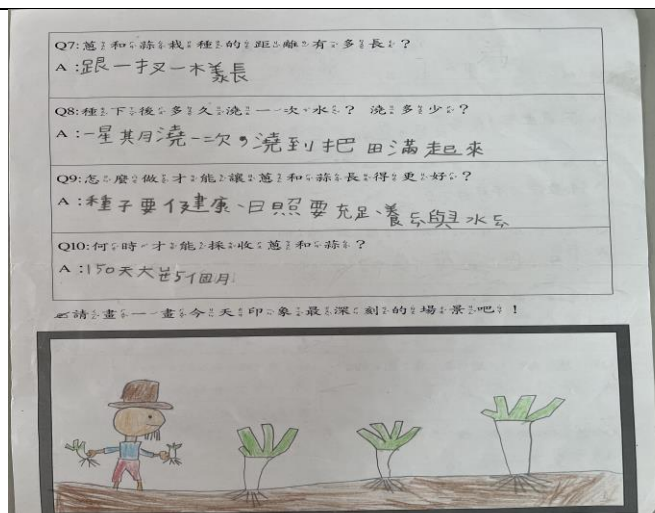 Q7:蔥和蒜栽種的距離有多長？
A:跟一扠一木羕長
Q8:種下後多久澆一次水？ 澆多少？
A:一星其月澆一次，澆到把田滿起來
Q9:怎麼做才能讓蔥和蒜長得更好？
A:種子要健康、日照要充足、養ㄈㄣ與水ㄈㄣ
Q10:何時才能採收蔥和蒜？
A:150天大5個月
請畫一畫今天印象最深刻的場景吧！